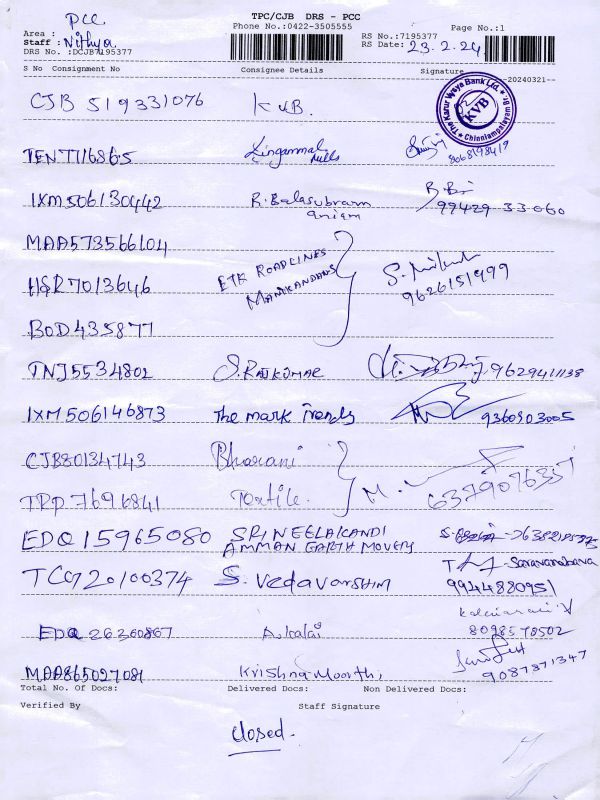 TPC/CJB DRS - PCC
PCC
Area :
Phone No.:0422-3505555
Page No.:1
Staff : Nithya
RS No.:7195377
DRS No. :DCJB7195377
RS Date: 23.2.24
S No Consignment No Consignee Details Signature
-20240321--
CJB 519331076 KVB.
The Karur Vysya Bank Ltd. KVB Chinniampalayam Br.
TEN T116865 Lingammal Mills 8068198419
IXM 506130442 R. Balasubram aniam 99429 33060
MAA573566104
HSR7013646 ETK ROADLINES MANIKANDAN S. 9626151999
BOD435877
TNJ5534802 S. RAJKUMAR 9629411138
IXM 506146873 The mark Trends 9360903005
CJB80134743 Bharani
TRP 7696841 Textile. M. 6379076357
EDQ 15965080 SRI NEELAKANDI
AMMAN EARTH MOVERS
TCG720100374 S. Vedavarshim Saravanabava
9944880951
EDQ 26360867 A. Kalai 8098578502
MAA865027081 Krishna Moorthi, 9087871347
Total No. Of Docs: Delivered Docs: Non Delivered Docs:
Verified By Staff Signature
closed.